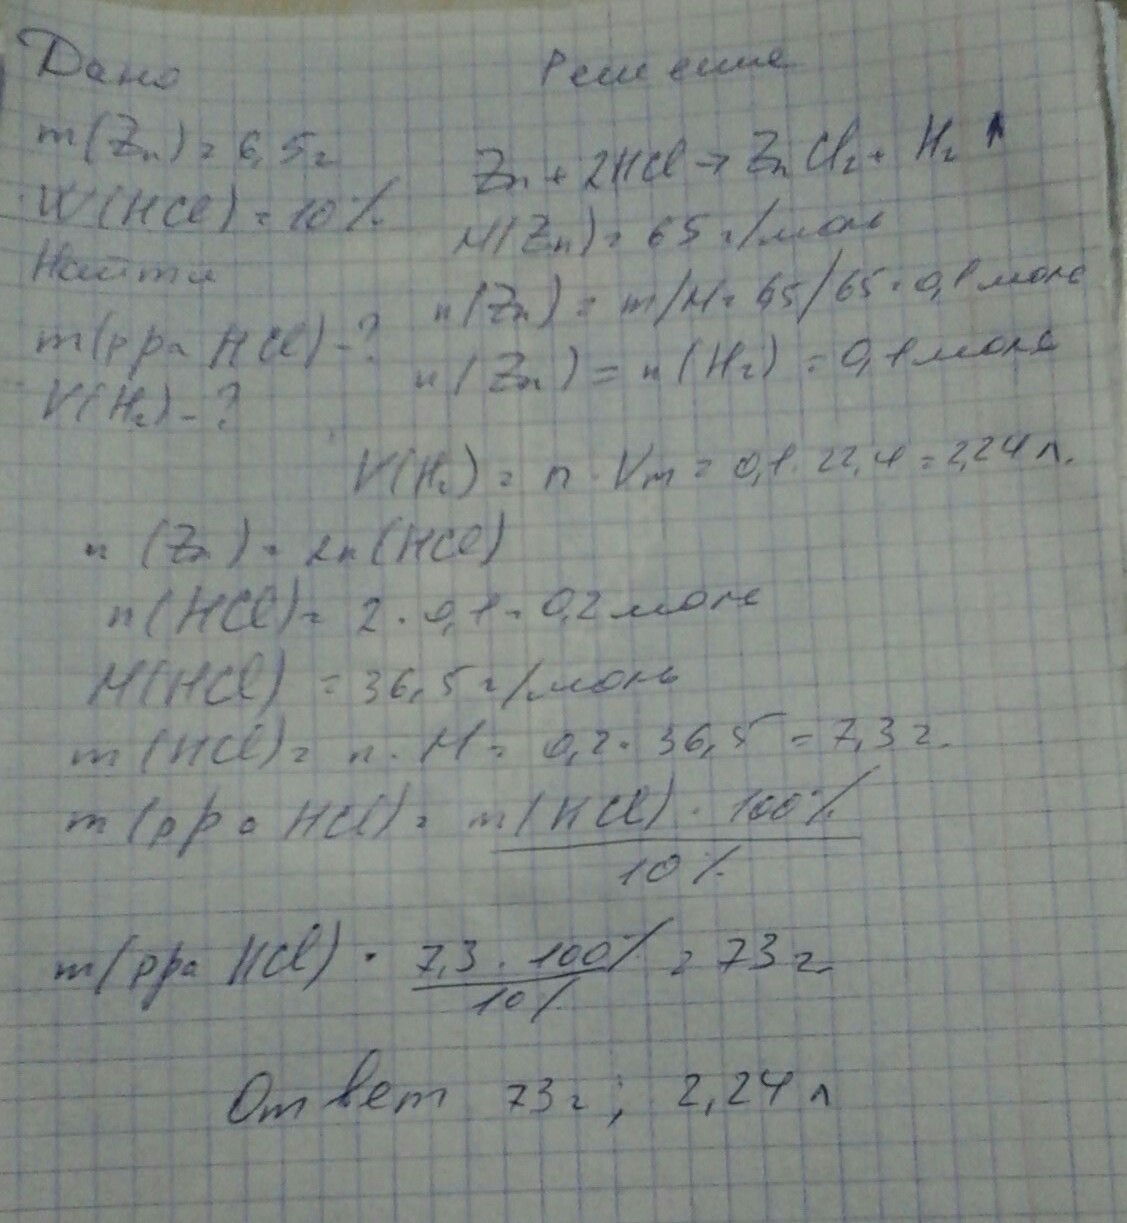 Дано
Решение
m(Zn) = 6,5г
W(HCl) = 10%
Найти
m(рра HCl) - ?
V(H₂) - ?
Zn + 2HCl → ZnCl₂ + H₂↑
M(Zn) = 65 г/моль
n(Zn) = m/M = 6,5/65 = 0,1 моль
n(Zn) = n(H₂) = 0,1 моль
V(H₂) = n · Vm = 0,1 · 22,4 = 2,24 л.
n(Zn) = 2n(HCl)
n(HCl) = 2 · 0,1 = 0,2 моль
M(HCl) = 36,5 г/моль
m(HCl) = n · M = 0,2 · 36,5 = 7,3 г.
m(рра HCl) = m(HCl) · 100% / 10%
m(рра HCl) = 7,3 · 100% / 10% = 73 г.
Ответ 73 г; 2,24 л